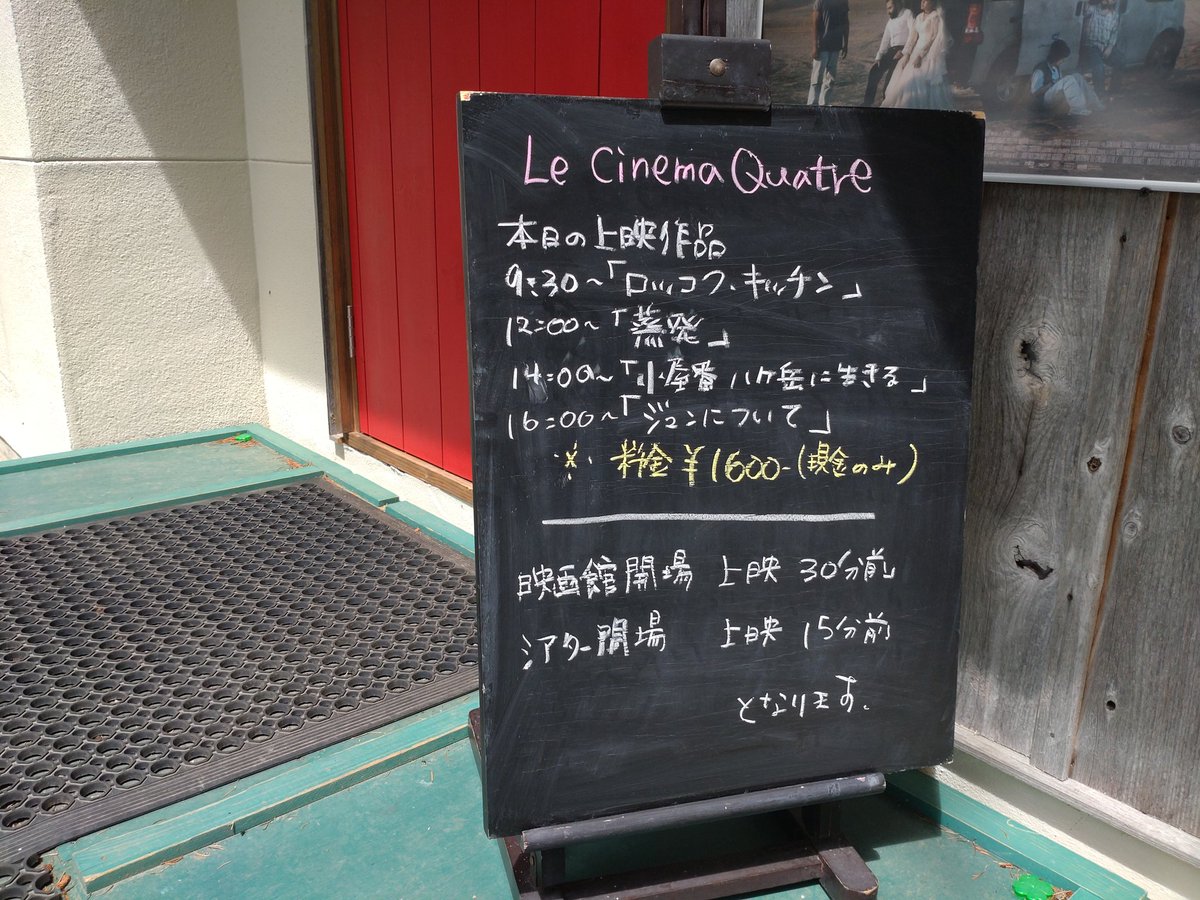 Le Cinema Quatre
本日の上映作品
9:30~「ロッコク・キッチン」
12:00~「蒸発」
14:00~「小屋番 八ケ岳に生きる」
16:00~「ジュンについて」
※ 料金 ¥1600-(現金のみ)
映画館開場 上映 30分前
シアター開場 上映 15分前
となります.